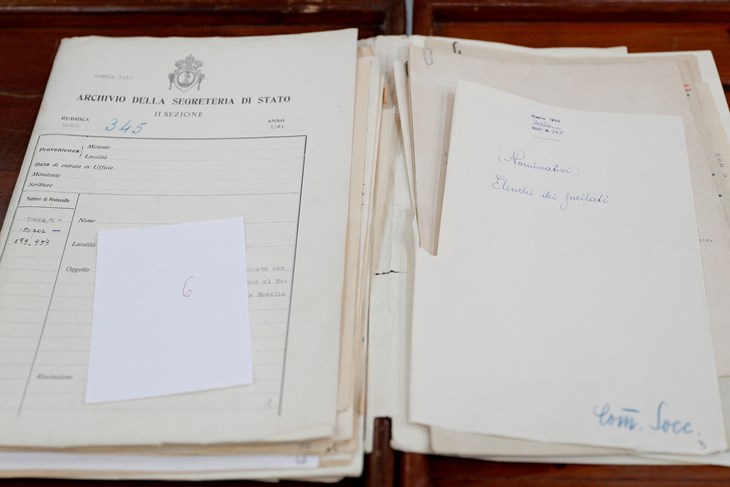 ARCHIVIO DELLA SEGRETERIA DI STATO
II SEZIONE
RUBRICA
345
ANNO
Provenienza
Mittente
Località
Data di entrata in Ufficio
Minutante
Scritture
Numeri di Protocollo
Nome
150202
Località
159.454
Oggetto
6
Risoluzione
(Nominativi)
Elenchi dei fucilati
Com. Socc.